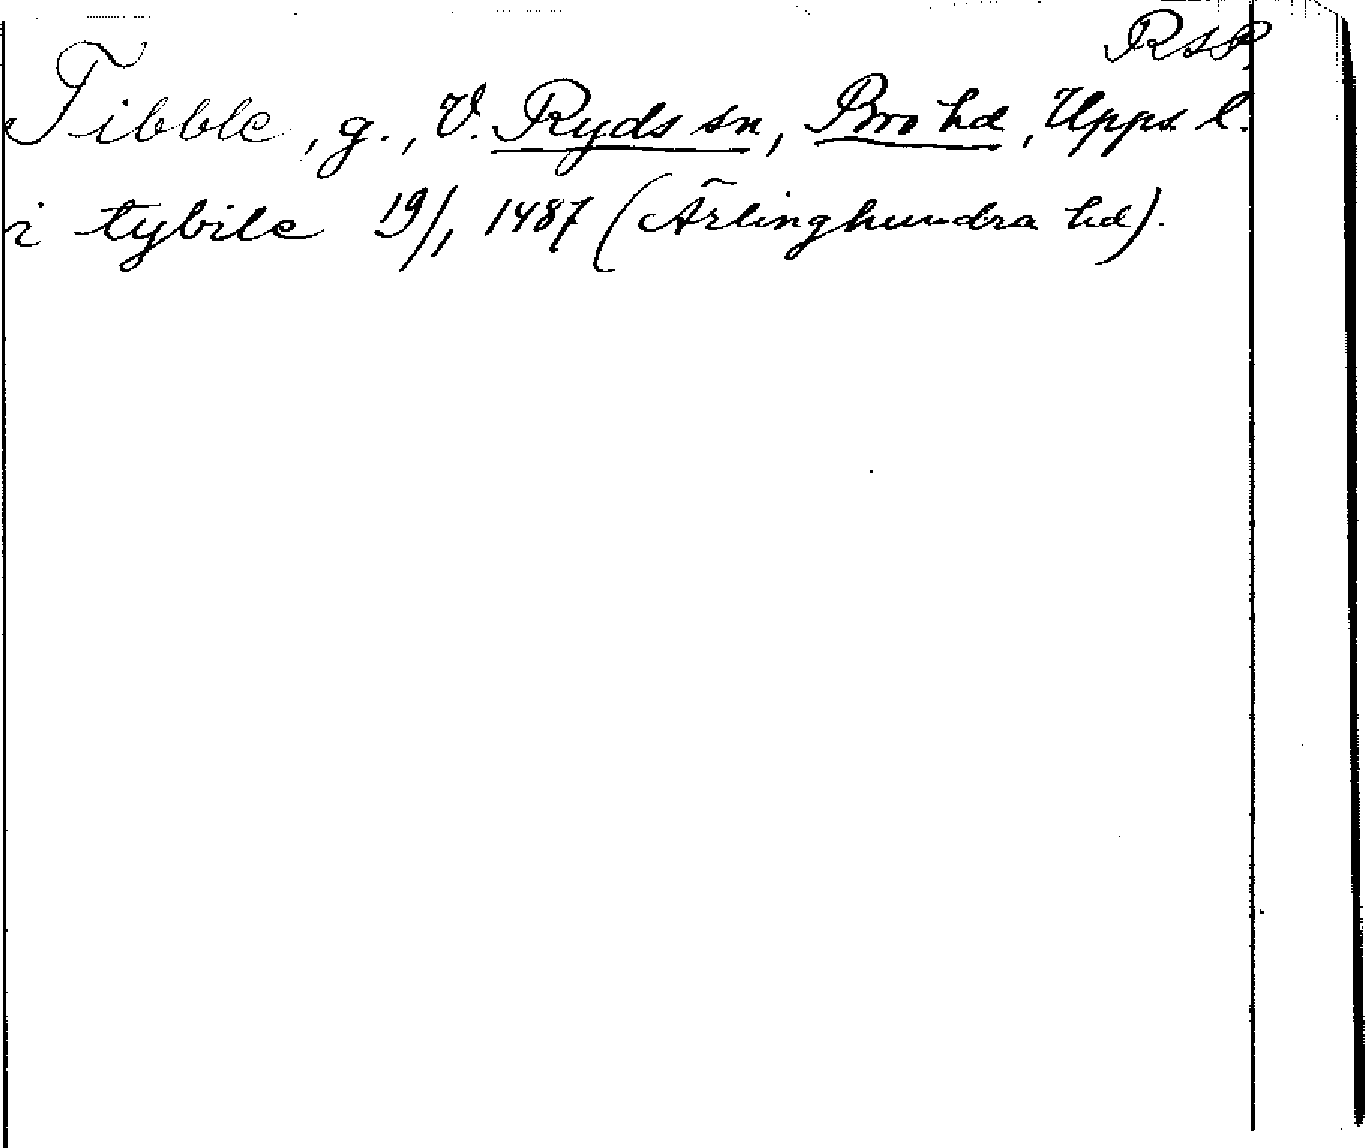 RSP,
Tibble, g., V. Ryds sn, Bro hd, Upps. l.
i tybile 19/1 1487 (Ärlinghundra hd).